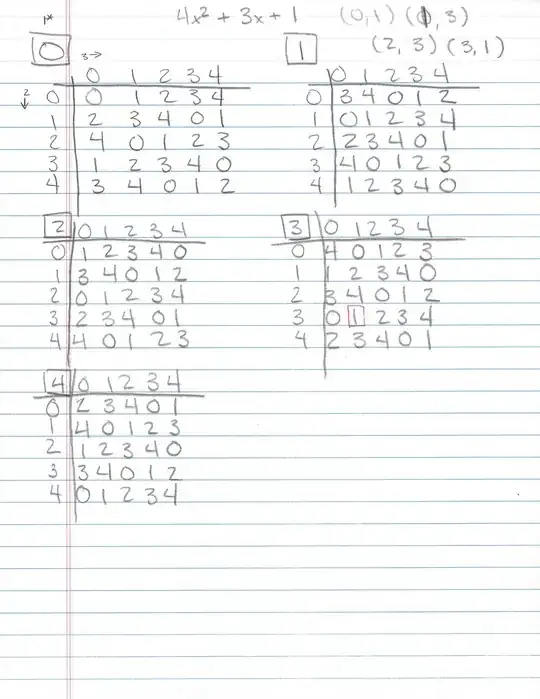 1* 4x² + 3x + 1 (0,1) (1, 3)
0 3→ 1 (2, 3) (3, 1)
0 1 2 3 4 0 1 2 3 4
2↓ 0 0 1 2 3 4 0 3 4 0 1 2
1 2 3 4 0 1 1 0 1 2 3 4
2 4 0 1 2 3 2 2 3 4 0 1
3 1 2 3 4 0 3 4 0 1 2 3
4 3 4 0 1 2 4 1 2 3 4 0
2 0 1 2 3 4 3 0 1 2 3 4
0 1 2 3 4 0 0 4 0 1 2 3
1 3 4 0 1 2 1 1 2 3 4 0
2 0 1 2 3 4 2 3 4 0 1 2
3 2 3 4 0 1 3 0 1 2 3 4
4 4 0 1 2 3 4 2 3 4 0 1
4 0 1 2 3 4
0 2 3 4 0 1
1 4 0 1 2 3
2 1 2 3 4 0
3 3 4 0 1 2
4 0 1 2 3 4